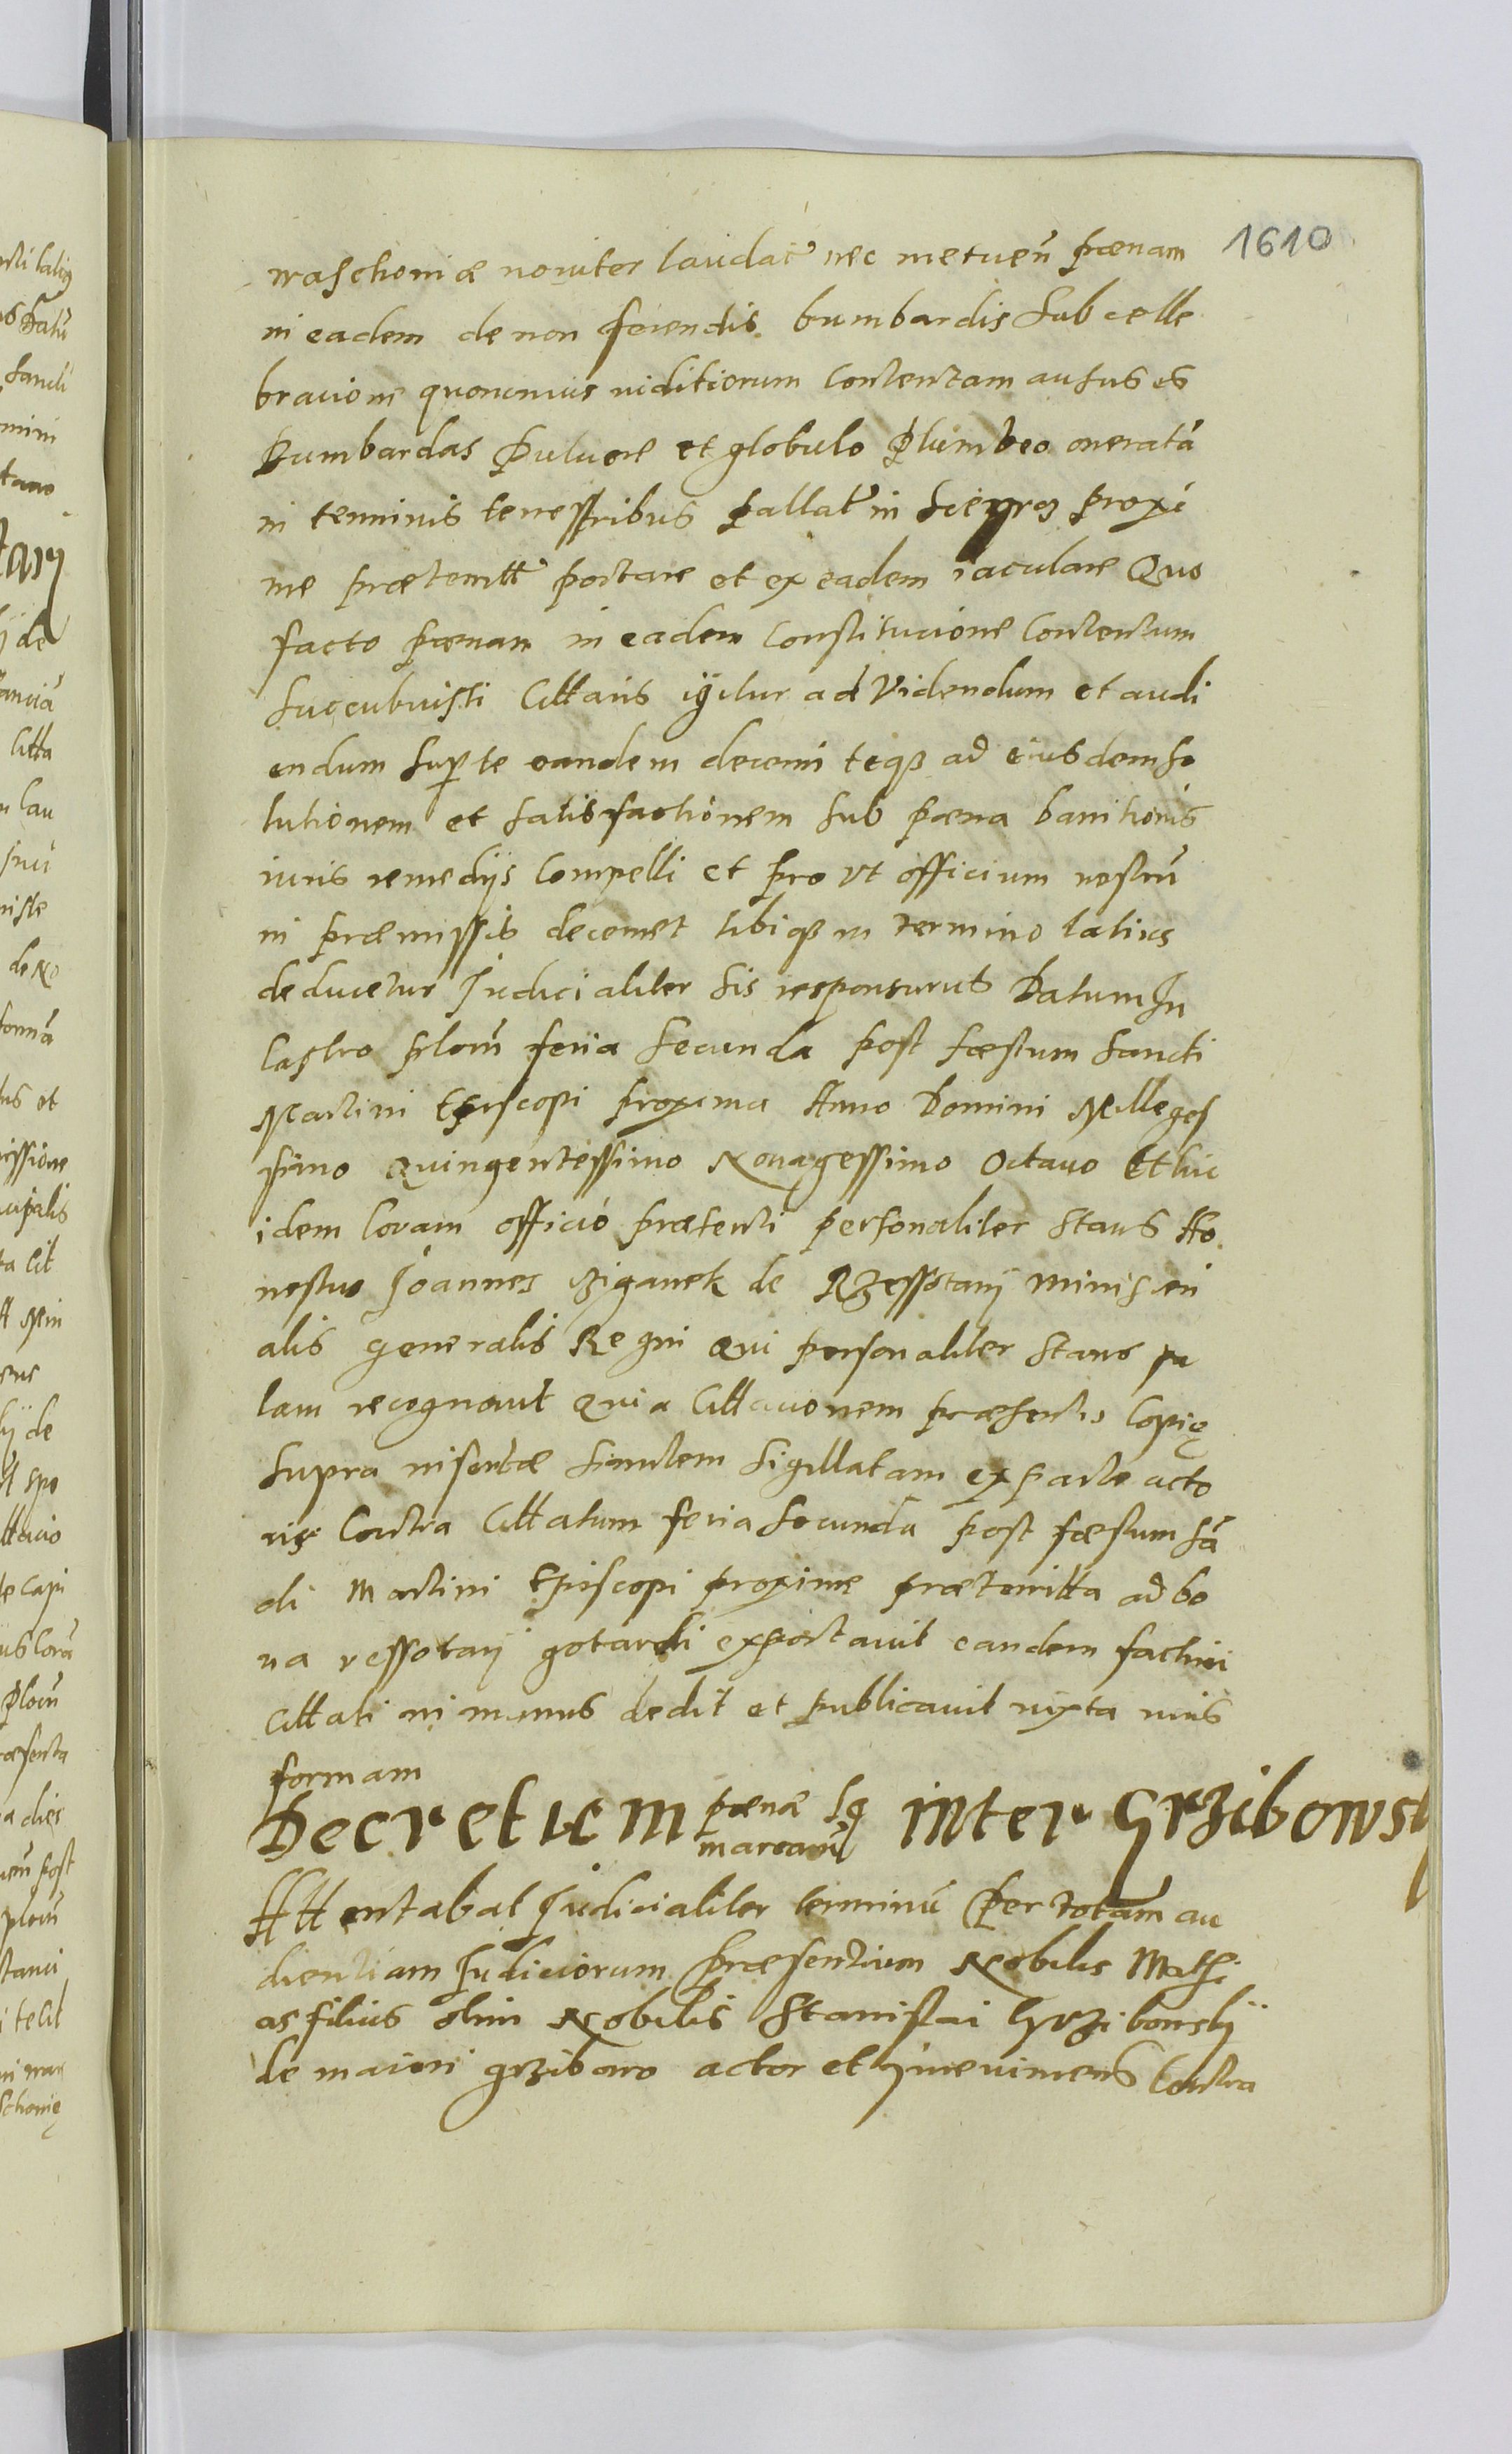 1610
waschoniæ noviter laudat nec metuen̄ pœnam
in eadem de non ferendis bumbardis sub celle
bracione quorumvis iuditiorum contentam ausus es
Bumbardas puluere et globulo plumbeo oneratā
in terminis terrestribus pallat in Sieprcz proxi
me præteritt portare et ex eadem iaculare Quo
facto pœnam in eadem Constitucione Contentam
succubuisti Cittaris igitur ad Videndum et audi
endum super te eandem decerni teqz ad eiusdem so
lutionem et satisfactionem sub pœna banitionis
iuris remedijs Compelli et pro vt officium nostrū
in præmissis decernet tibiqz in termino latius
deducetur Judicialiter sis responsurus Datum In
Castro plocn̄ feria secunda post fæstum sancti
Martini Episcopi proxima Anno Domini Milleges
simo Quingentessimo Nonagessimo Octauo Et hic
idem Coram officio præsenti personaliter stans Ho
nestus Joannes Ziganek de Rzessotarij ministeri
alis generalis Regni Qui personaliter stans pa
lam recognouit Quia Cittacionem præsentis Copię
supra insertæ similem sigillatam ex parte acto
ris Contra Cittatum feria secunda post fæstum sā
cti Martini Episcopi proxime præteritta ad bo
na ressotarij gotardi exportauit eandem factori
Cittati in manus dedit et publicauit iuxta iuris
formam
Decretum pœnæ 14 marcarū inter Grzibowsk
Attentabat Judicialiter terminū per totam au
dientiam Judiciorum præsentium Nobilis Mathi
as filius olim Nobilis Stanislai Grzibowskij
de maiori grzibowo actor et Contra